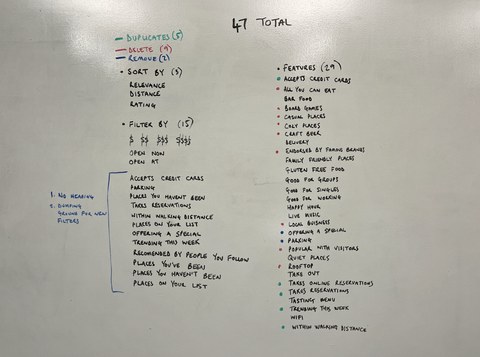 47 TOTAL
DUPLICATES (5)
DELETE (9)
REMOVE (2)
• SORT BY (3)
RELEVANCE
DISTANCE
RATING
• FILTER BY (15)
$ $$ $$$ $$$$
OPEN NOW
OPEN AT
ACCEPTS CREDIT CARDS
PARKING
PLACES YOU HAVEN'T BEEN
TAKES RESERVATIONS
WITHIN WALKING DISTANCE
PLACES ON YOUR LIST
OFFERING A SPECIAL
TRENDING THIS WEEK
RECOMENDED BY PEOPLE YOU FOLLOW
PLACES YOU'VE BEEN
PLACES YOU HAVEN'T BEEN
PLACES ON YOUR LIST
1. NO HEADING
2. DUMPING
GROUND FOR NEW
FILTERS
• FEATURES (29)
ACCEPTS CREDIT CARDS
ALL YOU CAN EAT
BAR FOOD
BOARD GAMES
CASUAL PLACES
COSY PLACES
CRAFT BEER
DELIVERY
ENDORSED BY FAMOUS BRANDS
FAMILY FRIENDLY PLACES
GLUTEN FREE FOOD
GOOD FOR GROUPS
GOOD FOR SINGLES
GOOD FOR WORKING
HAPPY HOUR
LIVE MUSIC
LOCAL BUISNESS
OFFERING A SPECIAL
PARKING
POPULAR WITH VISITORS
QUIET PLACES
ROOFTOP
TAKE OUT
TAKES ONLINE RESERVATIONS
TAKES RESERVATIONS
TASTING MENU
TRENDING THIS WEEK
WIFI
WITHIN WALKING DISTANCE